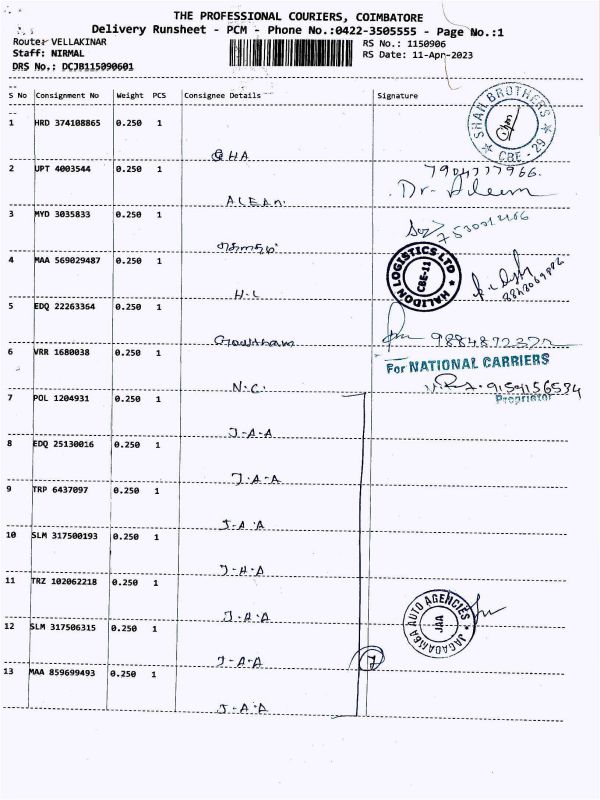 THE PROFESSIONAL COURIERS, COIMBATORE
Delivery Runsheet - PCM - Phone No.:0422-3505555 - Page No.:1
Route: VELLAKINAR
RS No.: 1150906
Staff: NIRMAL
RS Date: 11-Apr-2023
DRS No.: DCJB115090601
S No Consignment No Weight PCS Consignee Details Signature
1 HRD 374108865 0.250 1
SHAN BROTHERS CBE - 29
2 UPT 4003544 0.250 1
7904777966.
Dr. Aleem
ALEAM.
3 MYD 3035833 0.250 1
4 MAA 569029487 0.250 1
HALIDON LOGISTICS LTD CBE-11
H.L
5 EDQ 22263364 0.250 1
Gowtham
6 VRR 1680038 0.250 1
For NATIONAL CARRIERS
9154156594
Proprietor
N.C.
7 POL 1204931 0.250 1
J-A-A
8 EDQ 25130016 0.250 1
J-A-A
9 TRP 6437097 0.250 1
J-A-A
10 SLM 317500193 0.250 1
J-A-A
11 TRZ 102062218 0.250 1
J-A-A
JAGADAMBA AUTO AGENCIES JAA
12 SLM 317506315 0.250 1
J-A-A
7
13 MAA 859699493 0.250 1
J-A-A